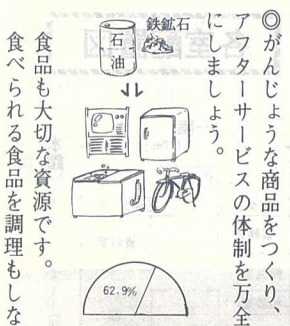 ◎がんじょうな商品をつくり、
アフターサービスの体制を万全
にしましょう。
鉄鉱石
石油
食品も大切な資源です。
食べられる食品を調理もしな
62.9%